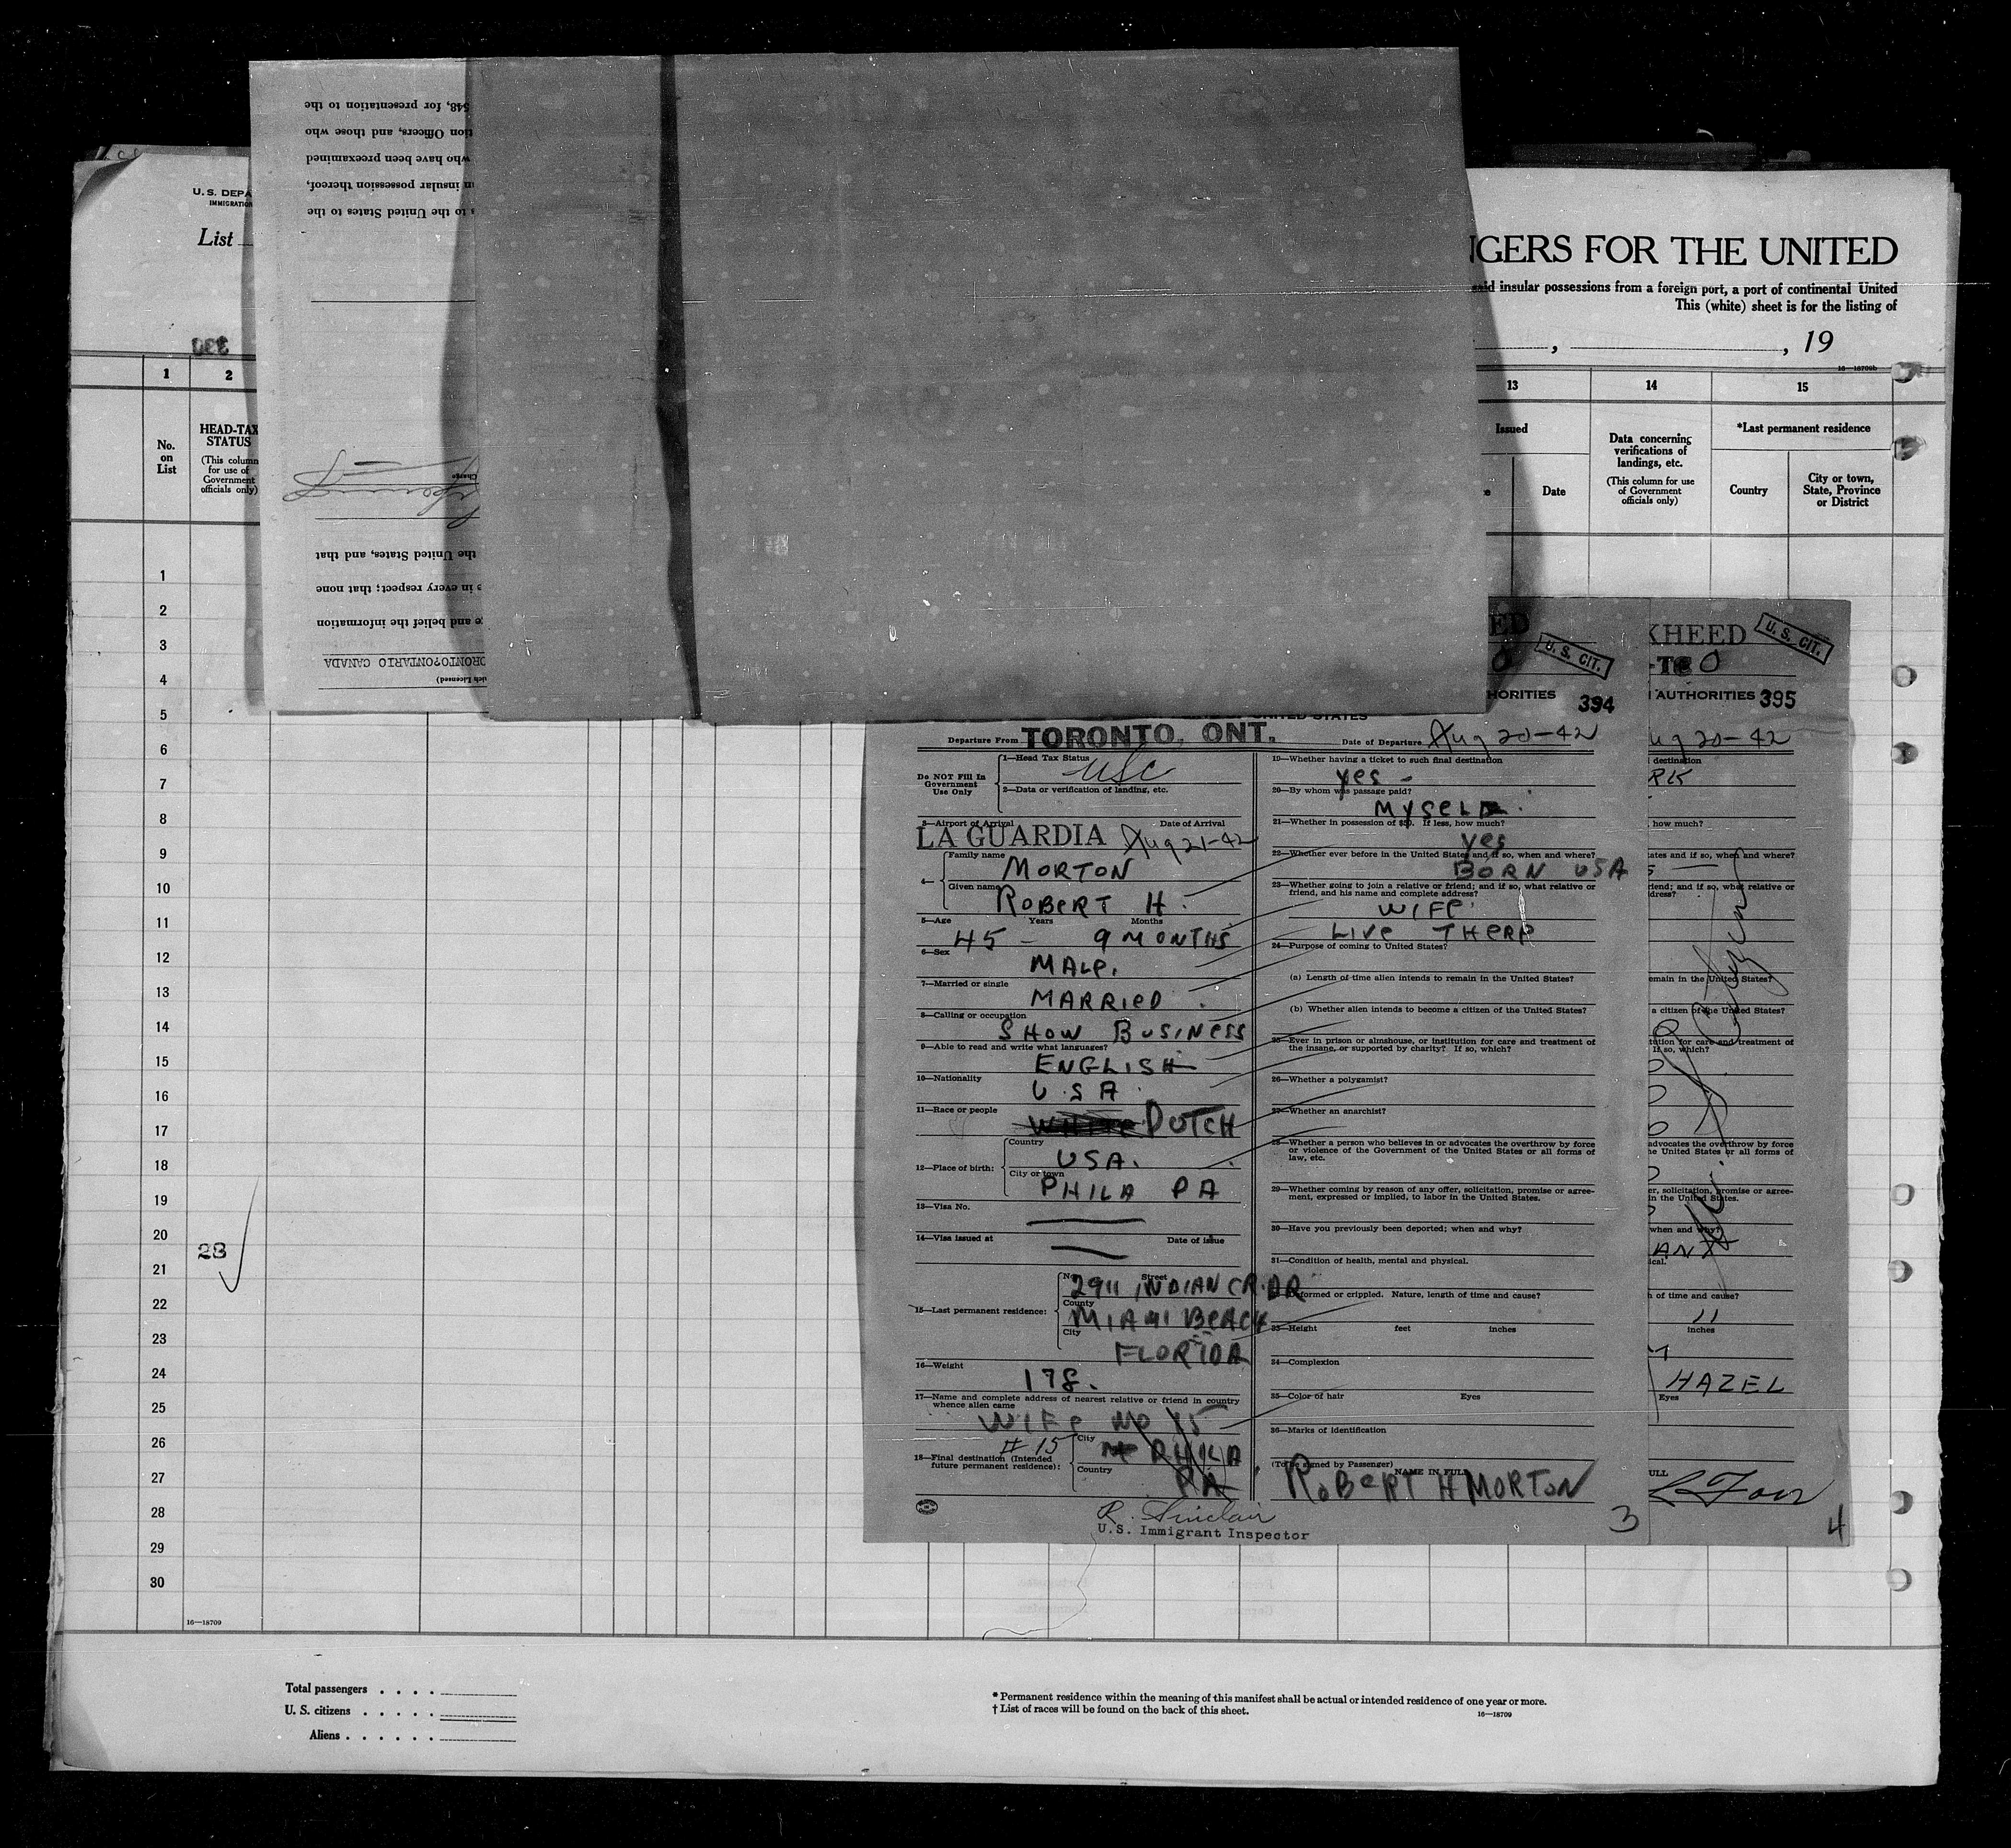 548, for presentation to the
tion Officers, and those who
who have been preexamined
insular possession thereof,
to the United States to the
Charge
the United States, and that
in every respect; that none
and belief the information
ORONTO?ONTARIO CANADA
ich Licensed)
U. S. DEPA
IMMIGRATION
List
330
NGERS FOR THE UNITED
said insular possessions from a foreign port, a port of continental United
This (white) sheet is for the listing of
, , 19
16—18709b
1 2 13 14 15
No. on List
HEAD-TAX STATUS
(This column for use of Government officials only)
Issued
Date
Data concerning verifications of landings, etc.
(This column for use of Government officials only)
*Last permanent residence
Country
City or town, State, Province or District
1
2
3
4
5
6
7
8
9
10
11
12
13
14
15
16
17
18
19
20
28
21
22
23
24
25
26
27
28
29
30
16—18709
Total passengers . . . .
U. S. citizens . . . . .
Aliens . . . . . .
* Permanent residence within the meaning of this manifest shall be actual or intended residence of one year or more.
† List of races will be found on the back of this sheet.
16—18709
ED
U. S. CIT.
HORITIES 394
UNITED STATES
Departure From TORONTO, ONT.
Date of Departure Aug 20-42
Do NOT Fill In
Government
Use Only
1—Head Tax Status
USC
2—Data or verification of landing, etc.
3—Airport of Arrival Date of Arrival
LA GUARDIA Aug 21-42
4—
Family name
MORTON
Given name
ROBERT H.
5—Age Years Months
45 - 9 MONTHS
6—Sex
MALe.
7—Married or single
MARRIeD
8—Calling or occupation
SHOW BUSINeSS
9—Able to read and write what languages?
ENGLISH
10—Nationality
U.S A
11—Race or people
WHITe DUTCH
12—Place of birth:
Country
USA.
City or town
PHILA PA
13—Visa No.
14—Visa issued at Date of issue
15—Last permanent residence:
No. Street
2911 INDIAN CR. DR
County
MIAMI BeACH
City
FLORIDA
16—Weight
178.
17—Name and complete address of nearest relative or friend in country
whence alien came
WIFe NO 15
18—Final destination (Intended
future permanent residence):
# 15
City
PHILA
Country
PA
R. Sinclair
U.S. Immigrant Inspector
19—Whether having a ticket to such final destination
yes -
20—By whom was passage paid?
MYSeLF.
21—Whether in possession of $50. If less, how much?
yes
22—Whether ever before in the United States and if so, when and where?
BORN USA
23—Whether going to join a relative or friend; and if so, what relative or
friend, and his name and complete address?
WIFe
LIVe THeRe
24—Purpose of coming to United States?
(a) Length of time alien intends to remain in the United States?
(b) Whether alien intends to become a citizen of the United States?
25—Ever in prison or almshouse, or institution for care and treatment of
the insane, or supported by charity? If so, which?
26—Whether a polygamist?
27—Whether an anarchist?
28—Whether a person who believes in or advocates the overthrow by force
or violence of the Government of the United States or all forms of
law, etc.
29—Whether coming by reason of any offer, solicitation, promise or agree-
ment, expressed or implied, to labor in the United States.
30—Have you previously been deported; when and why?
31—Condition of health, mental and physical.
formed or crippled. Nature, length of time and cause?
33—Height feet inches
34—Complexion
35—Color of hair Eyes
36—Marks of identification
(To be signed by Passenger) NAME IN FULL
ROBeRT H MORTON
3
KHEED
U. S. CIT.
AUTHORITIES 395
ug 20-42
destination
RK
how much?
tates and if so, when and where?
riend; and if so, what relative or
dress?
emain in the United States?
a citizen of the United States?
tution for care and treatment of
If so, which?
advocates the overthrow by force
he United States or all forms of
er, solicitation, promise or agree-
in the United States.
when and why?
AN
ical.
h of time and cause?
11
inches
HAZEL
Eyes
ULL
4